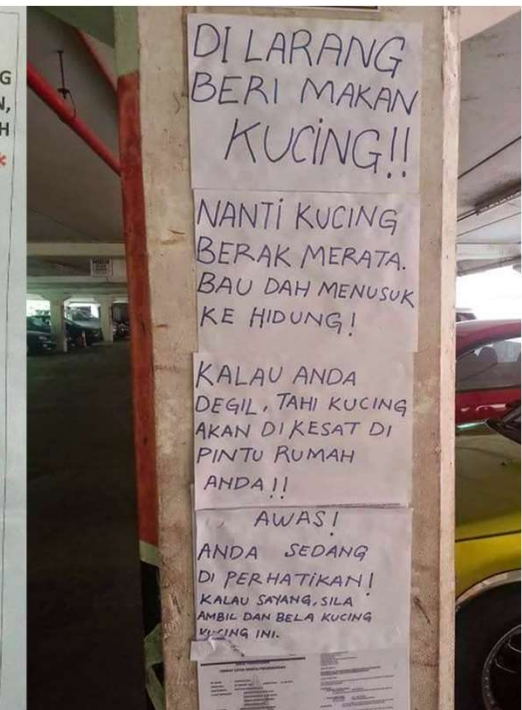 DI LARANG
BERI MAKAN
KUCING!!
NANTI KUCING
BERAK MERATA.
BAU DAH MENUSUK
KE HIDUNG!
KALAU ANDA
DEGIL, TAHI KUCING
AKAN DI KESAT DI
PINTU RUMAH
ANDA!!
AWAS!
ANDA SEDANG
DI PERHATIKAN!
KALAU SAYANG, SILA
AMBIL DAN BELA KUCING
KUCING INI.